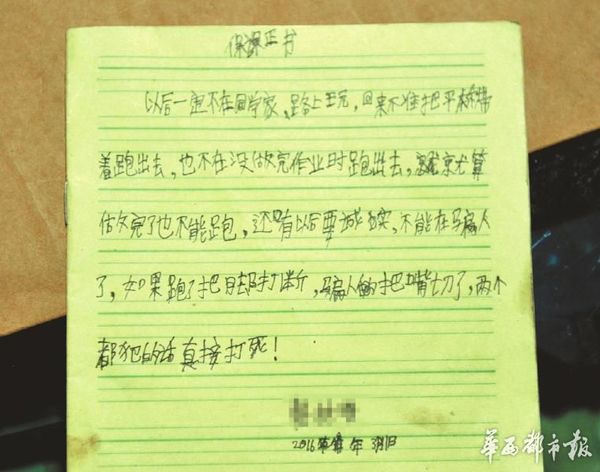 保课正书
以后一定不在同学家、路上玩，回来不准把平板带
着跑出去，也不在没做完作业时跑出去，就算
做完了也不能跑，还有以后要诚实，不能在骗人
了，如果跑了把腿打断，骗人的把嘴切了，两个
都犯的话直接打死！
2016年3月1日
华西都市报